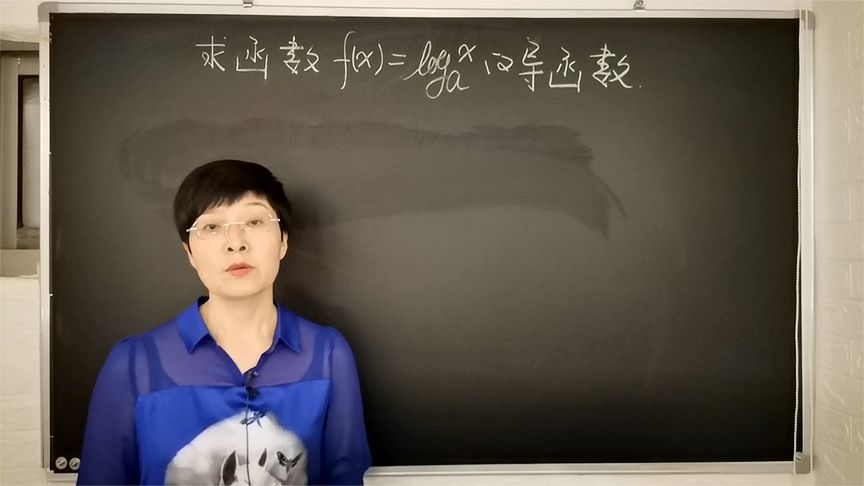 求函数 f(x)=logₐx 的导函数.